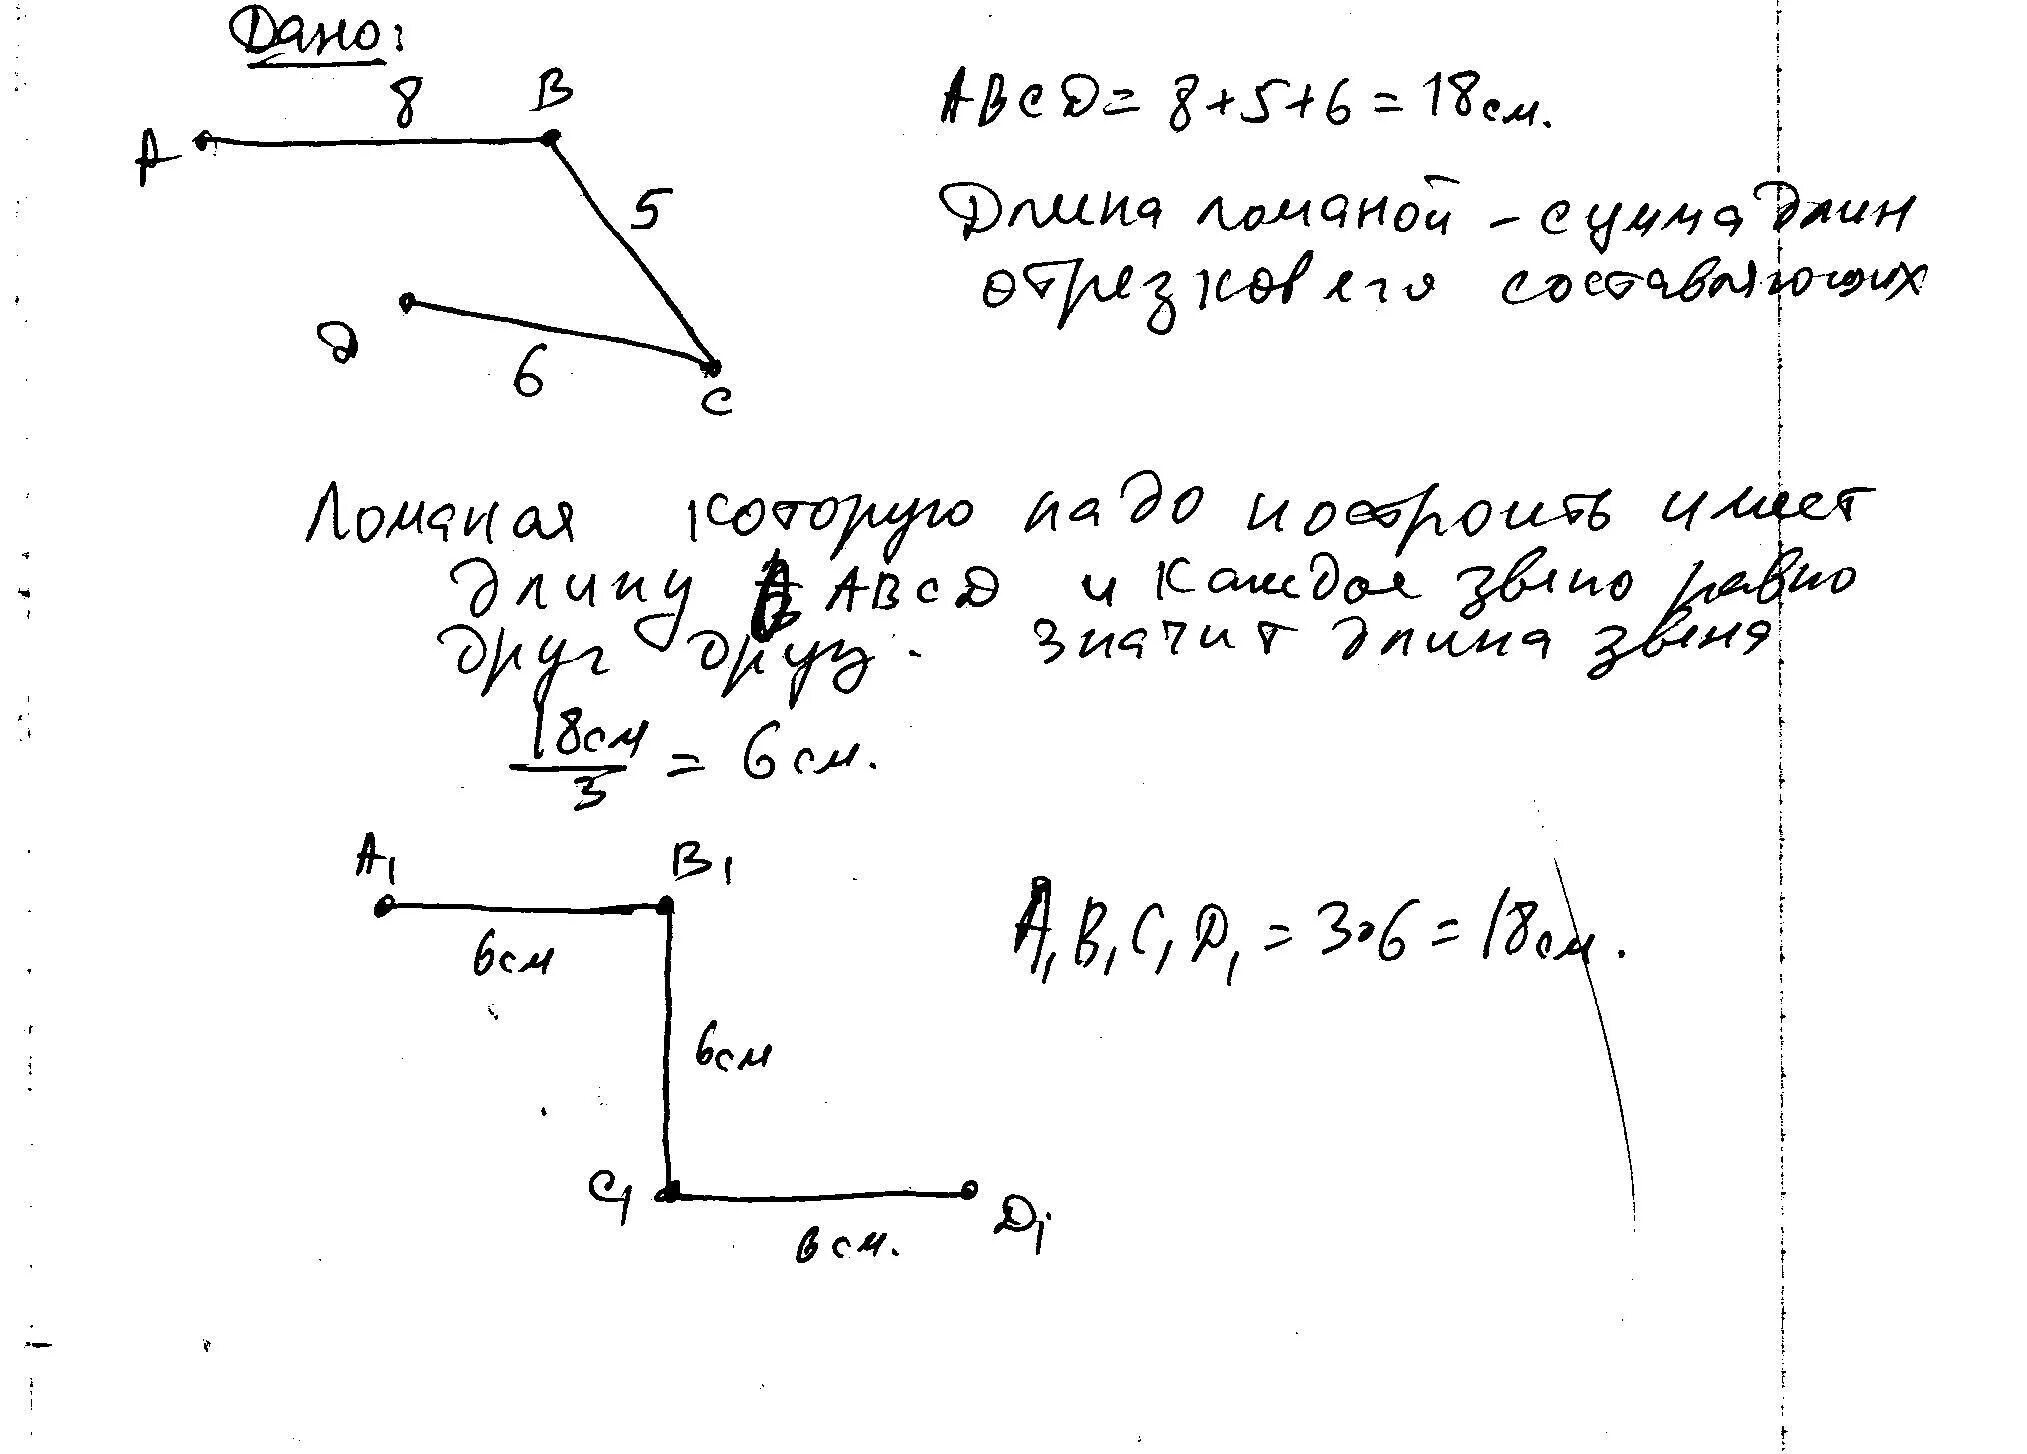 Дано:
8
B
A
5
D
6
C
ABCD = 8+5+6 = 18 см.
Длина ломаной – сумма длин
отрезков его составляющих
Ломаная которую надо построить имеет
длину ABCD и каждое звено равно
друг другу. значит длина звена
18см
3
= 6 см.
A1
B1
6см
6см
C1
D1
6 см.
A1B1C1D1 = 3·6 = 18 см.